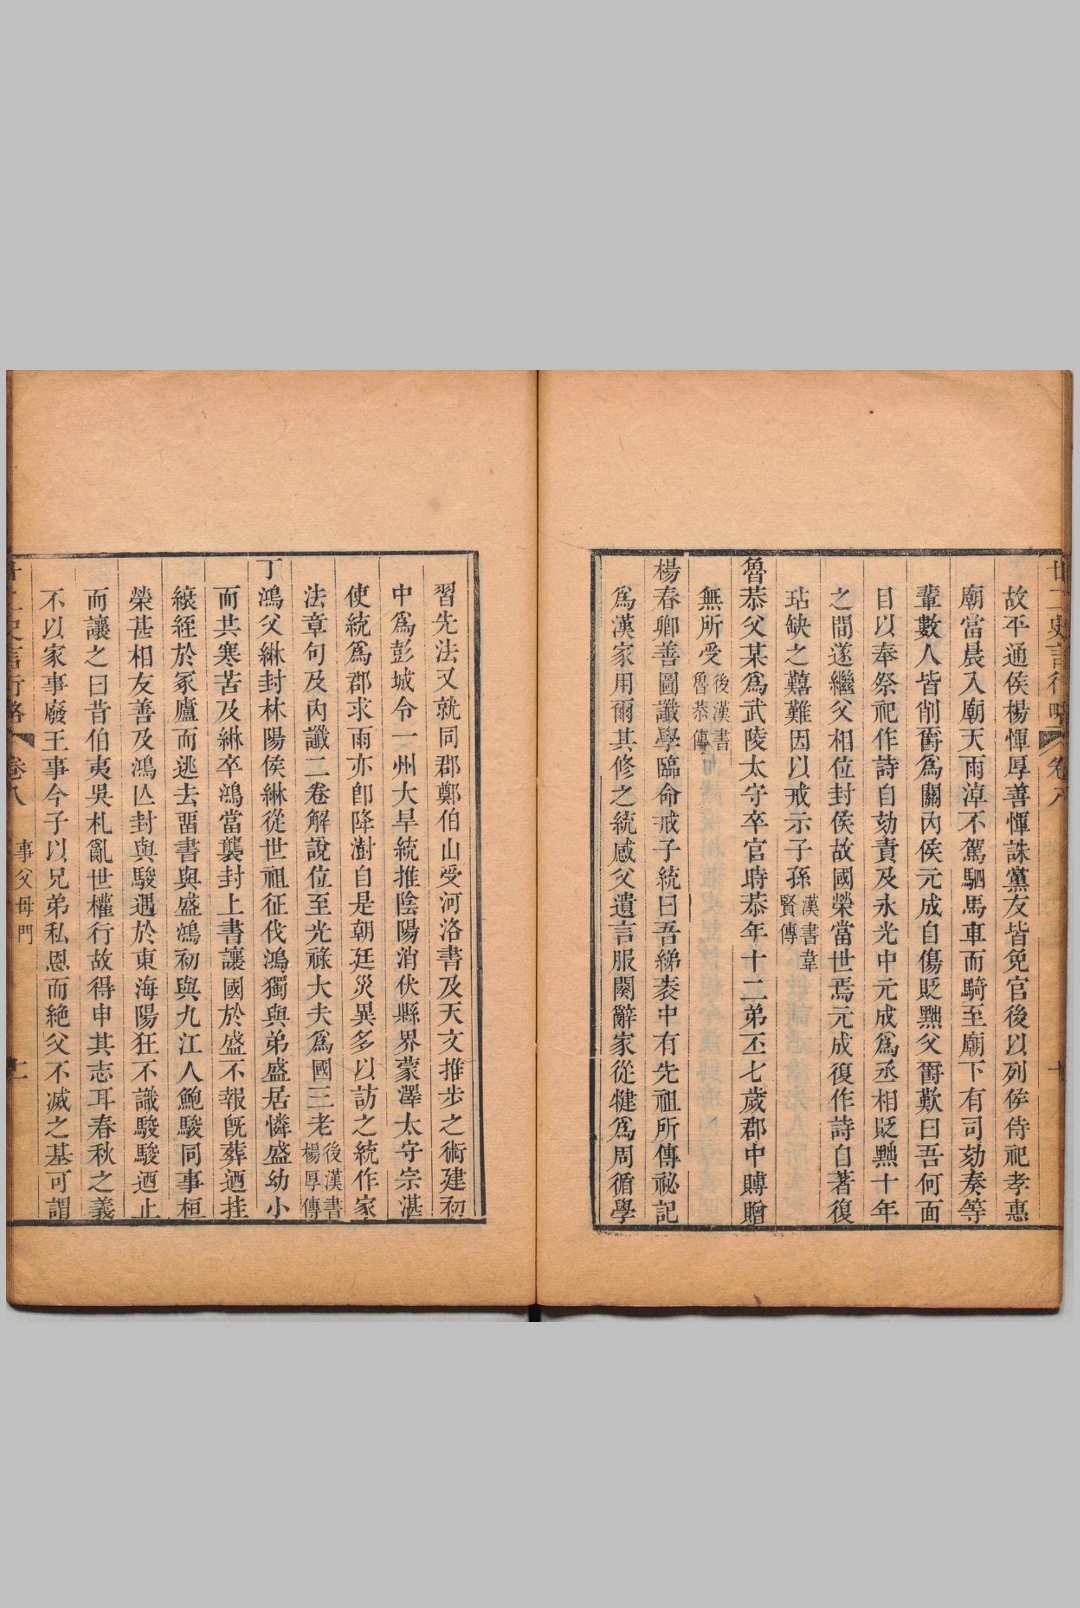 廿二史言行略 卷八 十
故平通侯楊惲厚善惲誅黨友皆免官後以列侯侍祀孝惠
廟當晨入廟天雨淖不駕駟馬車而騎至廟下有司劾奏等
輩數人皆削爵爲關內侯元成自傷貶黜父爵歎曰吾何面
目以奉祭祀作詩自劾責及永光中元成爲丞相貶黜十年
之間遂繼父相位封侯故國榮當世焉元成復作詩自著復
玷缺之囏難因以戒示子孫漢書韋賢傳
魯恭父某爲武陵太守卒官時恭年十二弟丕七歲郡中賻贈
無所受後漢書魯恭傳
楊春卿善圖讖學臨命戒子統曰吾綈袠中有先祖所傳祕記
爲漢家用爾其修之統感父遺言服闋辭家從犍爲周循學
習先法又就同郡鄭伯山受河洛書及天文推步之術建初
中爲彭城令一州大旱統推陰陽消伏縣界蒙澤太守宗湛
使統爲郡求雨亦卽降澍自是朝廷災異多以訪之統作家
法章句及內讖二卷解說位至光祿大夫爲國三老後漢書楊厚傳
丁鴻父綝封林陽侯綝從世祖征伐鴻獨與弟盛居憐盛幼小
而共寒苦及綝卒鴻當襲封上書讓國於盛不報旣葬迺挂
縗絰於冢廬而逃去畱書與盛鴻初與九江人鮑駿同事桓
榮甚相友善及鴻亾封與駿遇於東海陽狂不識駿駿迺止
而讓之曰昔伯夷吳札亂世權行故得申其志耳春秋之義
不以家事廢王事今子以兄弟私恩而絶父不滅之基可謂
廿二史言行略 卷八 事父母門 十一